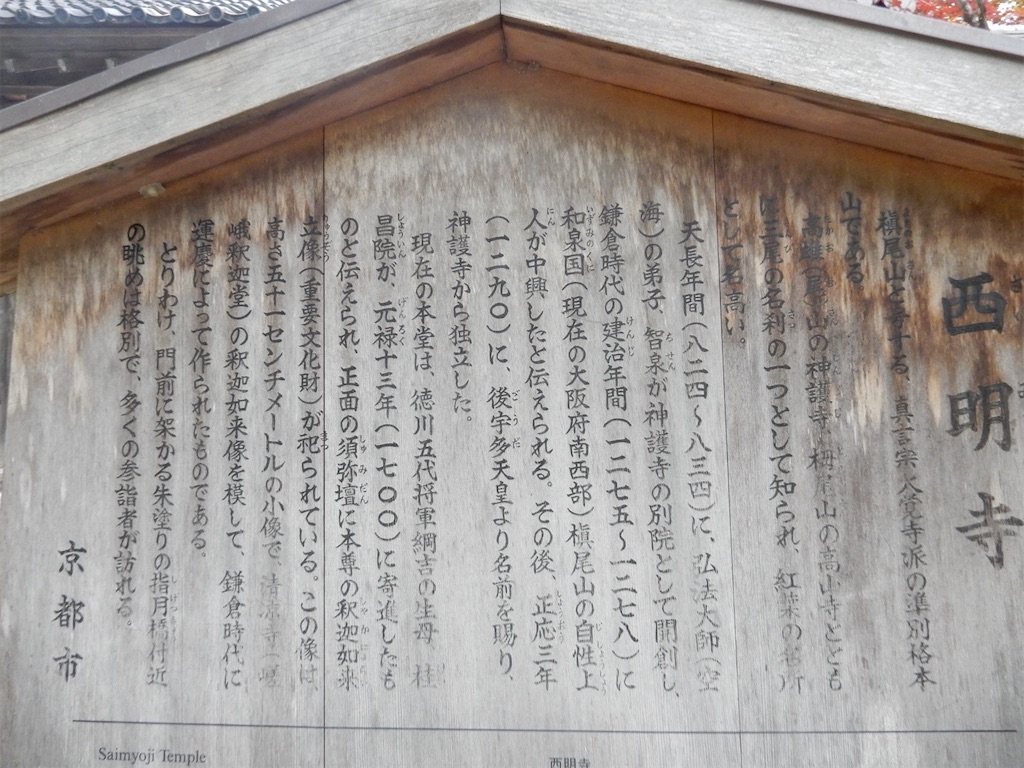 西明寺
槇尾山と号する、真言宗大覚寺派の準別格本
山である。
高雄(尾)山の神護寺、栂尾山の高山寺ととも
に三尾の名刹の一つとして知られ、紅葉の名所
として名高い。
天長年間(八二四〜八三四)に、弘法大師(空
海)の弟子、智泉が神護寺の別院として開創し、
鎌倉時代の建治年間(一二七五〜一二七八)に
和泉国(現在の大阪府南西部)槇尾山の自性上
人が中興したと伝えられる。その後、正応三年
(一二九〇)に、後宇多天皇より名前を賜り、
神護寺から独立した。
現在の本堂は、徳川五代将軍綱吉の生母 桂
昌院が、元禄十三年(一七〇〇)に寄進したも
のと伝えられ、正面の須弥壇に本尊の釈迦如来
立像(重要文化財)が祀られている。この像は、
高さ五十一センチメートルの小像で、清凉寺(嵯
峨釈迦堂)の釈迦如来像を模して、鎌倉時代に
運慶によって作られたものである。
とりわけ、門前に架かる朱塗りの指月橋付近
の眺めは格別で、多くの参詣者が訪れる。
京都市
Saimyoji Temple
西明寺